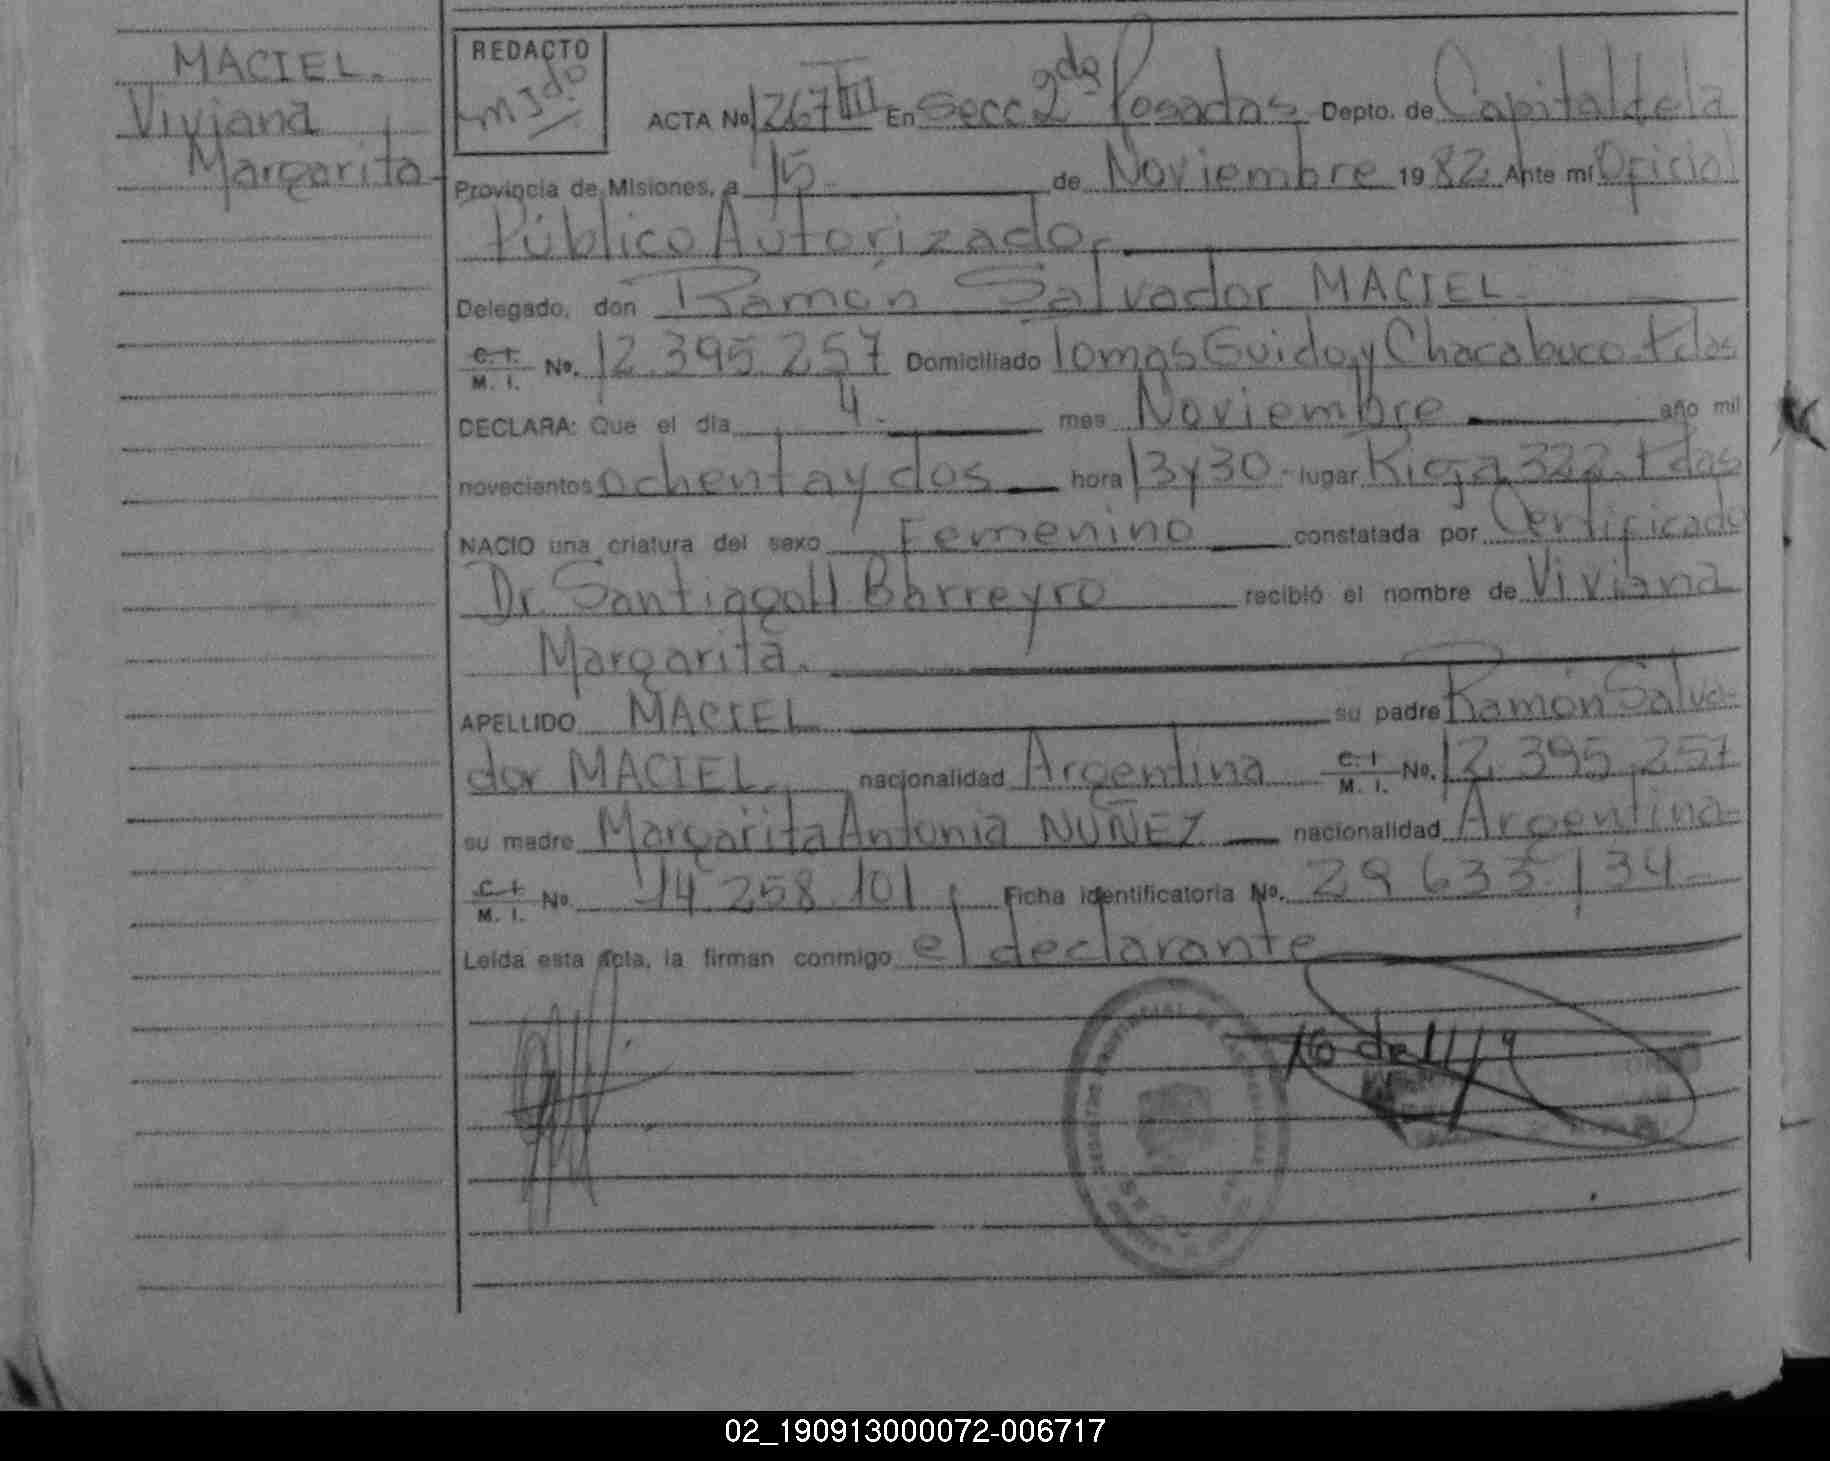 MACIEL.
Viviana
Margarita
REDACTO
ACTA No 1267 III En Secc 2da Posadas Depto. de Capital de la
Provincia de Misiones, a 15 de Noviembre 1982 Ante mí Oficial
Público Autorizado
Delegado, don Ramón Salvador MACIEL
C. I. M. I. No. 12.395.257 Domiciliado Tomas Guido y Chacabuco
DECLARA: Que el día 4 mes Noviembre año mil
novecientos ochenta y dos hora 13 y 30 lugar Rioja 322
NACIO una criatura del sexo Femenino constatada por Certificado
Dr. Santiago H. Barreyro recibió el nombre de Viviana
Margarita.
APELLIDO MACIEL su padre Ramón Salva-
dor MACIEL nacionalidad Argentina C. I. M. I. No. 12.395.257
su madre Margarita Antonia NUÑEZ nacionalidad Argentina
C. I. M. I. No. 14.258.101 Ficha identificatoria No. 29.633.134
Leída esta acta, la firman conmigo el declarante
16 de 11/9
02_190913000072-006717